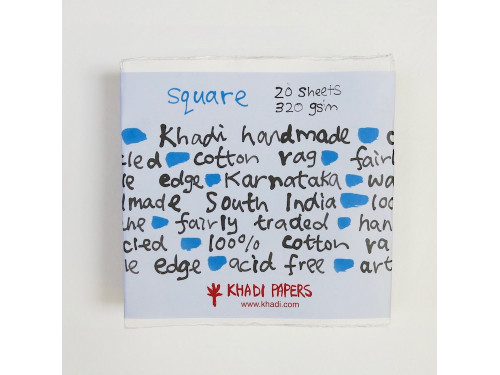 square 20 sheets
320 gsm
Khadi handmade
cotton rag fair
edge Karnataka
made South India 100
fairly traded han
cled 100% cotton ra
edge acid free art
KHADI PAPERS
www.khadi.com